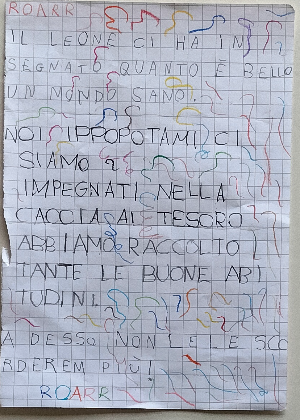 ROARR
IL LEONE CI HA IN
SEGNATO QUANTO È BELLO
UN MONDO SANO!
NOI IPPOPOTAMI CI
SIAMO
IMPEGNATI NELLA
CACCIA AL TESORO
ABBIAMO RACCOLTO
TANTE LE BUONE ABI
TUDINI
ADESSO NON LE LE SCO
RDEREM PIÙ!
ROARR